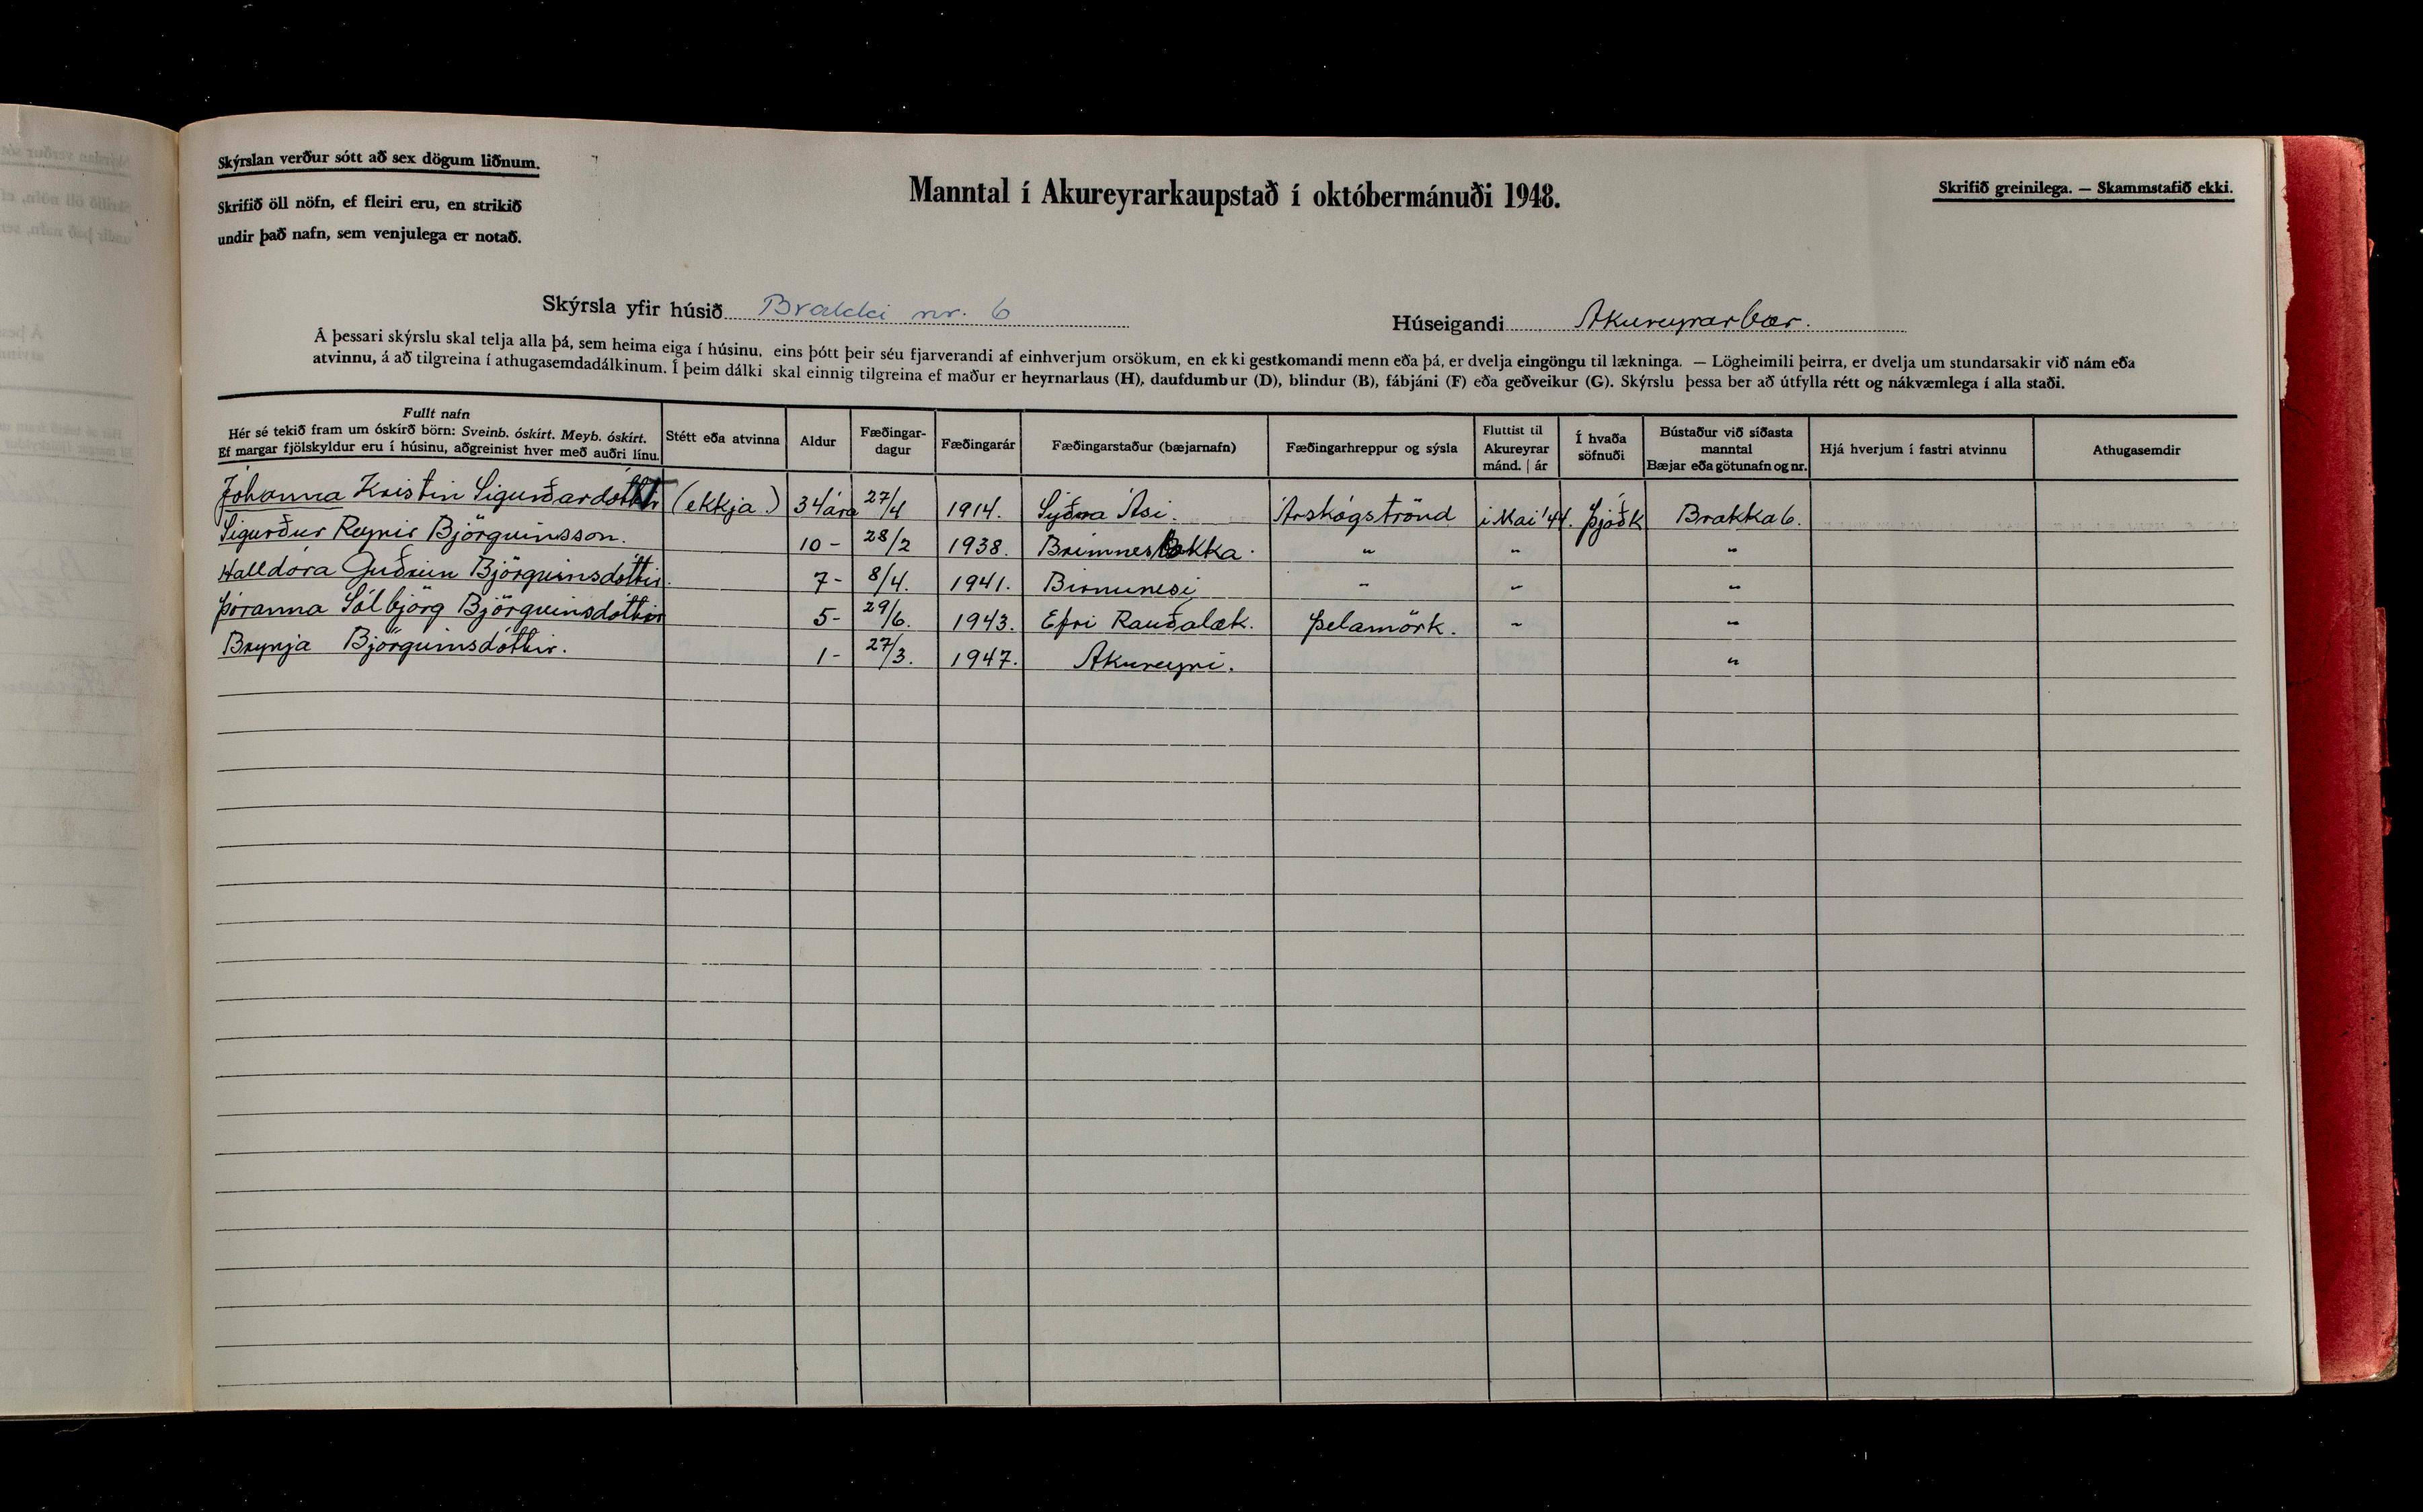 Skýrslan verður sótt að sex dögum liðnum.
Skrifið öll nöfn, ef fleiri eru, en strikið
undir það nafn, sem venjulega er notað.
Manntal í Akureyrarkaupstað í októbermánuði 1948.
Skrifið greinilega. — Skammstafið ekki.
Skýrsla yfir húsið Brakki nr. 6
Húseigandi Akureyrarbær.
Á þessari skýrslu skal telja alla þá, sem heima eiga í húsinu, eins þótt þeir séu fjarverandi af einhverjum orsökum, en ekki gestkomandi menn eða þá, er dvelja eingöngu til lækninga. — Lögheimili þeirra, er dvelja um stundarsakir við nám eða
atvinnu, á að tilgreina í athugasemdadálkinum. Í þeim dálki skal einnig tilgreina ef maður er heyrnarlaus (H), daufdumbur (D), blindur (B), fábjáni (F) eða geðveikur (G). Skýrslu þessa ber að útfylla rétt og nákvæmlega í alla staði.
Fullt nafn
Hér sé tekið fram um óskírð börn: Sveinb. óskírt. Meyb. óskírt.
Ef margar fjölskyldur eru í húsinu, aðgreinist hver með auðri línu.
Stétt eða atvinna
Aldur
Fæðingar-
dagur
Fæðingarár
Fæðingarstaður (bæjarnafn)
Fæðingarhreppur og sýsla
Fluttist til
Akureyrar
mánd. | ár
Í hvaða
söfnuði
Bústaður við síðasta
manntal
Bæjar eða götunafn og nr.
Hjá hverjum í fastri atvinnu
Athugasemdir
Jóhanna Kristín Sigurðardóttir (ekkja.) 34 ára 27/4 1914. Syðra Ási. Árskógströnd í Maí '44. Þjóðk Brakka 6.
Sigurður Reynir Björgvinsson. 10 - 28/2 1938. Brimnesbakka. " " "
Halldóra Guðrún Björgvinsdóttir. 7 - 8/4. 1941. Birnunesi " " "
Þóranna Sólbjörg Björgvinsdóttir 5 - 29/6. 1943. Efri Rauðalæk. Þelamörk. " "
Brynja Björgvinsdóttir. 1 - 27/3. 1947. Akureyri. "